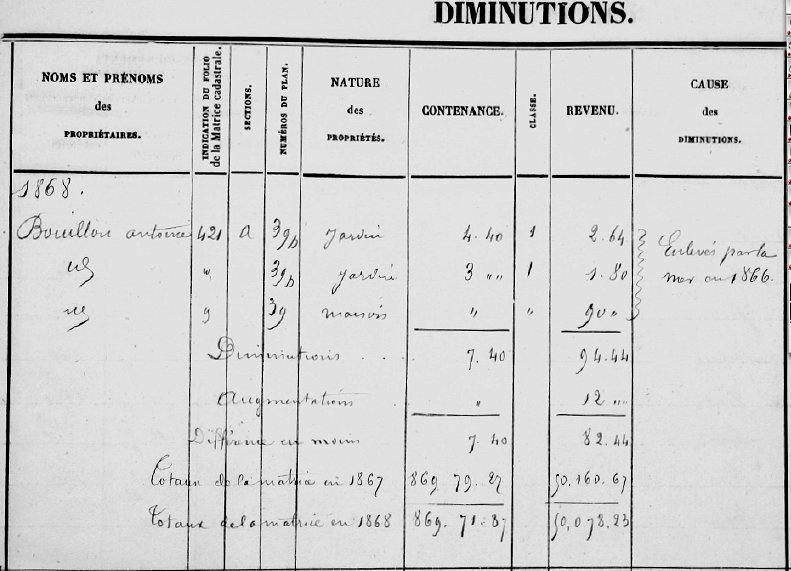 DIMINUTIONS.
NOMS ET PRÉNOMS des PROPRIÉTAIRES. INDICATION DU FOLIO de la Matrice cadastrale. SECTIONS. NUMÉROS DU PLAN. NATURE des PROPRIÉTÉS. CONTENANCE. CLASSE. REVENU. CAUSE des DIMINUTIONS.
1868.
Bouillon antoine 421 a 39b Jardin 4. 40 1 2. 64 Enlevés par la
id " 39b Jardin 3 "" 1 1. 80 mer en 1866.
id 39 maison " " 90 "
Diminutions . . . 7. 40 94. 44
Augmentations " 12 ""
Différence en moins 7. 40 82. 44
Totaux de la matrice en 1867 869 79. 27 50. 160. 67
Totaux de la matrice en 1868 869. 71. 87 50, 078. 23